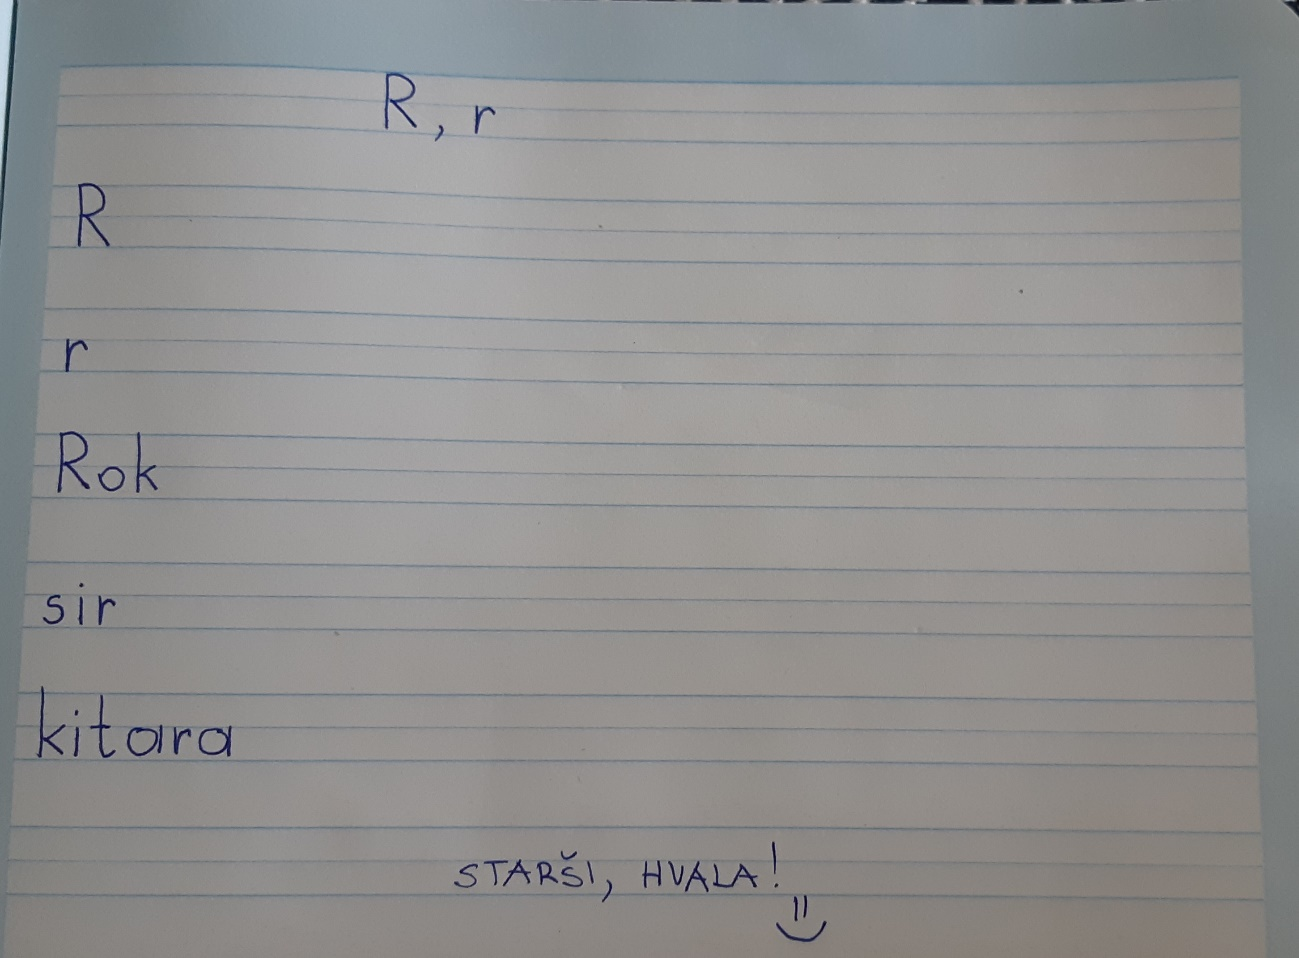 R, r
R
r
Rok
sir
kitara
STARŠI, HVALA!